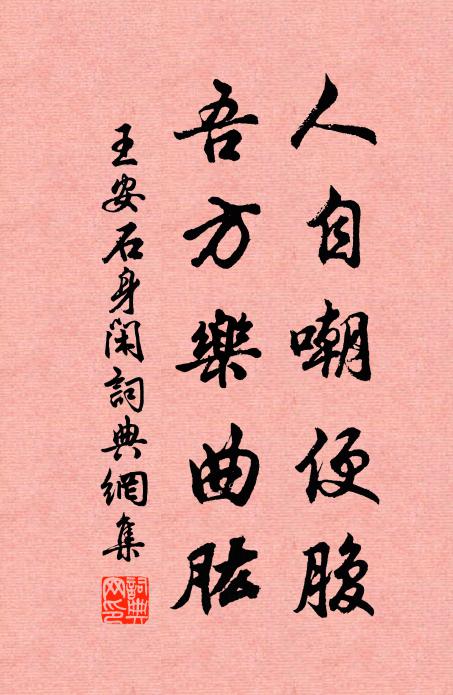 人自嘲便腹
吾方樂曲肱
王安石身閑詞典網集
詞典網印